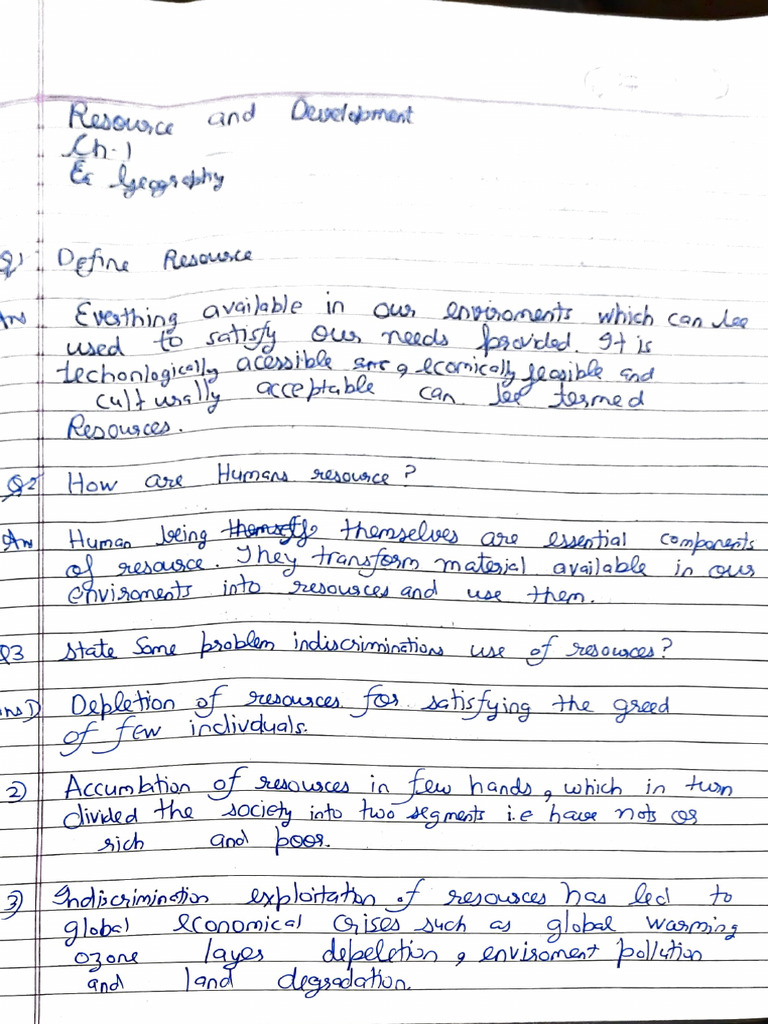 Resource and Development
Ch-1
Geography
Q1 Define Resource
Ans Everthing available in our enviroments which can be
used to satisfy our needs provided. It is
techonlogically acessible , ecomically feasible and
culturally acceptable can be termed
Resources.
Q2 How are Humans resource?
An Human being themselves are essential components
of resource. They transform material available in our
enviroments into resources and use them.
Q3 State Some problem indiscriminations use of resources?
Ans 1) Depletion of resources for satisfying the greed
of few indivduals.
2) Accumlation of resources in few hands, which in turn
divided the society into two segments i.e have nots or
rich and poor.
3) Indiscrimination exploitation of resources has led to
global economical crises such as global warming
ozone layes depeletion, enviroment pollution
and land degradation.